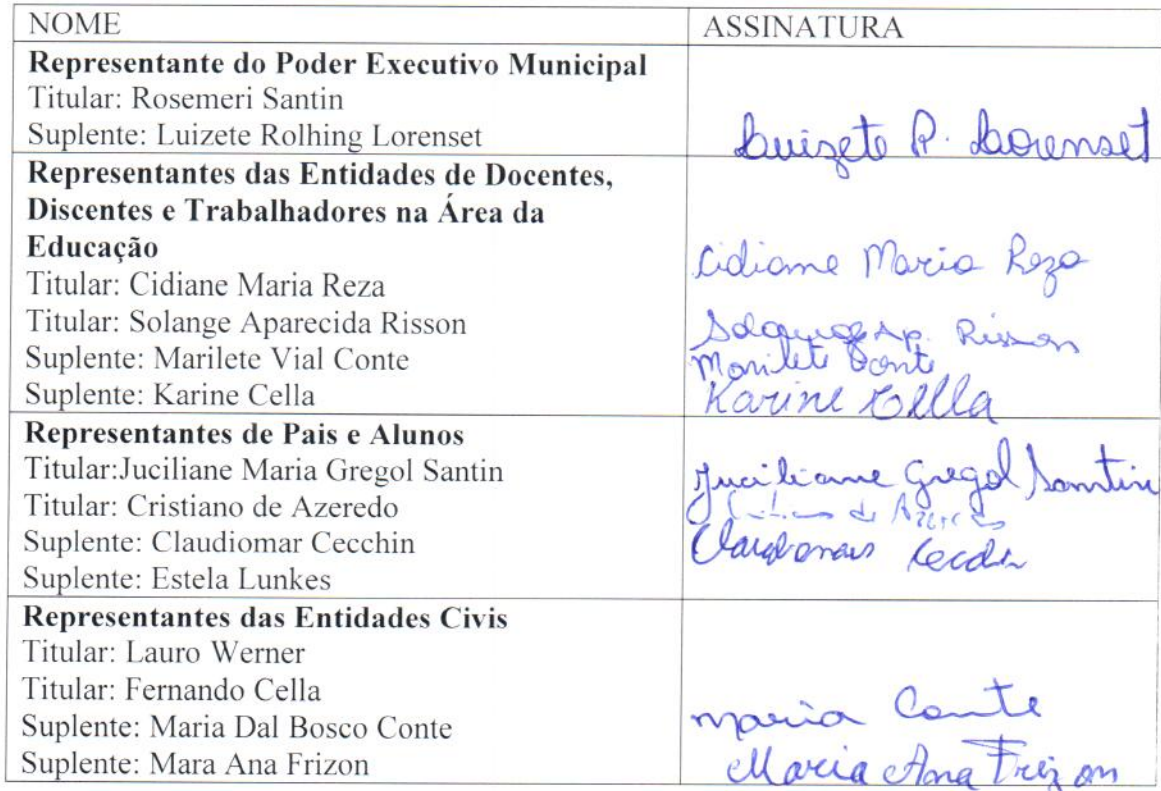 NOME
ASSINATURA
Representante do Poder Executivo Municipal
Titular: Rosemeri Santin
Suplente: Luizete Rolhing Lorenset
Luizete R. Lorenset
Representantes das Entidades de Docentes,
Discentes e Trabalhadores na Área da
Educação
Titular: Cidiane Maria Reza
Titular: Solange Aparecida Risson
Suplente: Marilete Vial Conte
Suplente: Karine Cella
Cidiane Maria Reza
Solange Ap. Risson
Marilete Conte
Karine Cella
Representantes de Pais e Alunos
Titular:Juciliane Maria Gregol Santin
Titular: Cristiano de Azeredo
Suplente: Claudiomar Cecchin
Suplente: Estela Lunkes
Juciliane Gregol Santin
de Azeredo
Representantes das Entidades Civis
Titular: Lauro Werner
Titular: Fernando Cella
Suplente: Maria Dal Bosco Conte
Suplente: Mara Ana Frizon
Maria Conte
Maria Ana Frizon